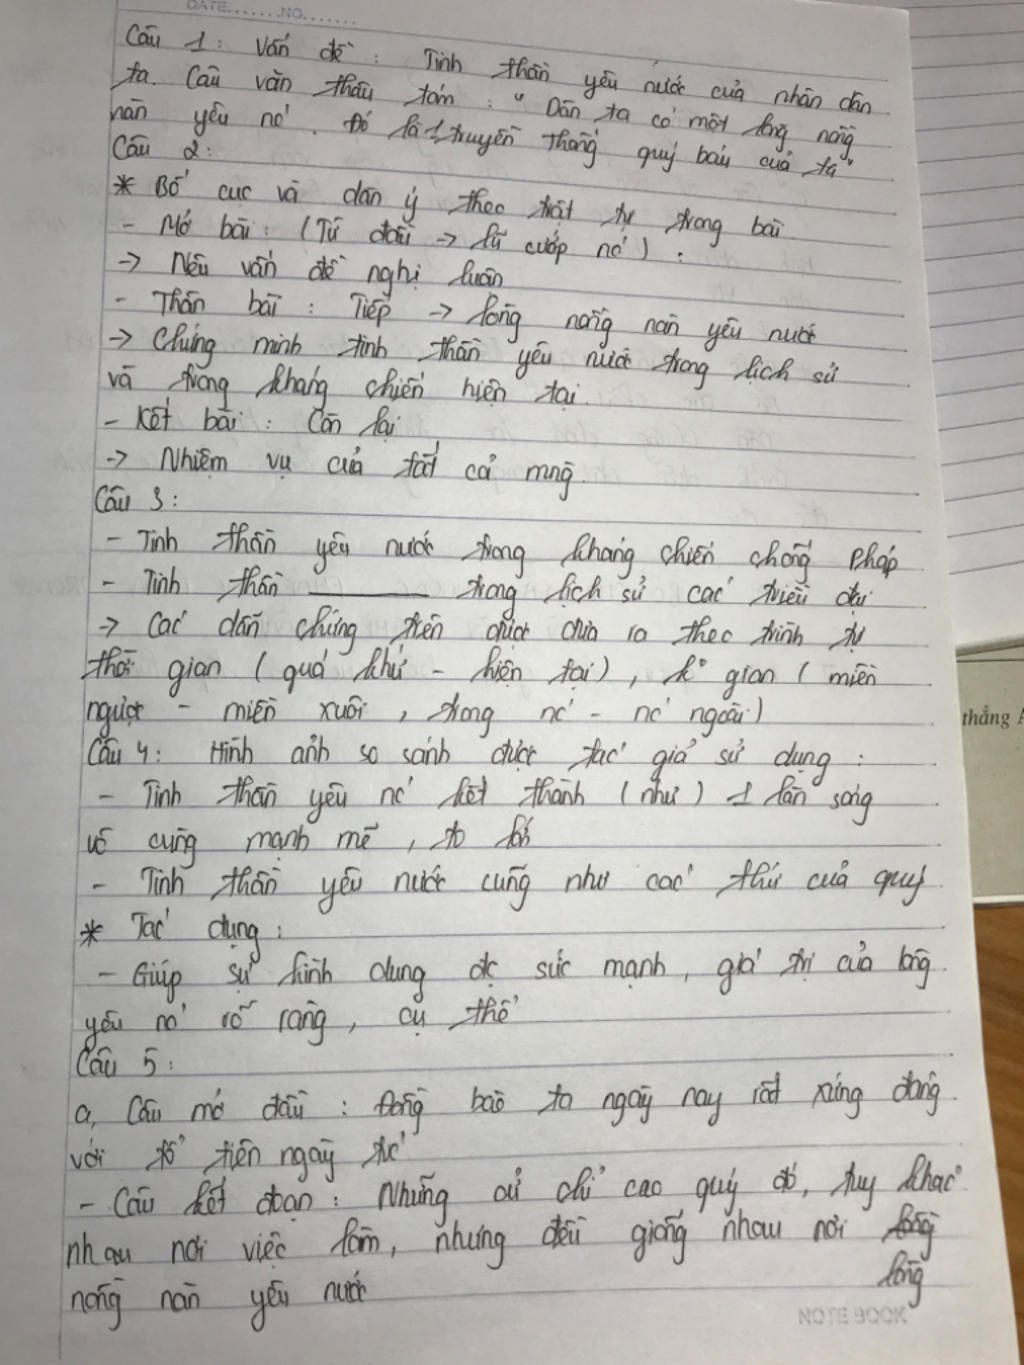 DATE........NO........
Câu 1: Vấn đề: Tinh thần yêu nước của nhân dân
ta. Câu văn thâu tóm: "Dân ta có một lòng nồng
nàn yêu nc'. Đó là 1 truyền thống quý báu của ta"
Câu 2:
* Bố cục và dàn ý theo trật tự trong bài
- Mở bài: (Từ đầu -> lũ cướp nc'):
-> Nêu vấn đề nghị luận
- Thân bài: Tiếp -> lòng nồng nàn yêu nước
-> Chứng minh tinh thần yêu nước trong lịch sử
và trong kháng chiến hiện tại.
- Kết bài: Còn lại
-> Nhiệm vụ của tất cả mng.
Câu 3:
- Tinh thần yêu nước trong kháng chiến chống Pháp
- Tinh thần ______ trong lịch sử các triều đại
-> Các dẫn chứng trên được đưa ra theo trình tự
thời gian (quá khứ - hiện tại), k° gian (miền
ngược - miền xuôi, trong nc' - nc' ngoài)
Câu 4: Hình ảnh so sánh được tác giả sử dụng:
- Tinh thần yêu nc' kết thành (như) 1 làn sóng
vô cùng mạnh mẽ, to lớn
- Tinh thần yêu nước cũng như các thứ của quý
* Tác dụng:
- Giúp sự hình dung đc sức mạnh, giá trị của lòng
yêu nc' rõ ràng, cụ thể
Câu 5:
a, Câu mở đầu: Đồng bào ta ngày nay rất xứng đáng
với tổ tiên ngày trc'
- Câu kết đoạn: Những cử chỉ cao quý đó, tuy khác
nhau nơi việc làm, nhưng đều giống nhau nơi lòng
lòng
nồng nàn yêu nước
NOTE BOOK
thẳng A